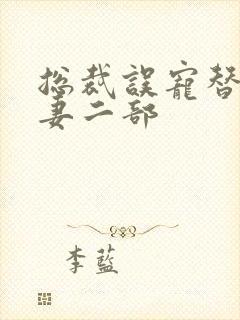 总裁誤寵替
妻二部
李藍